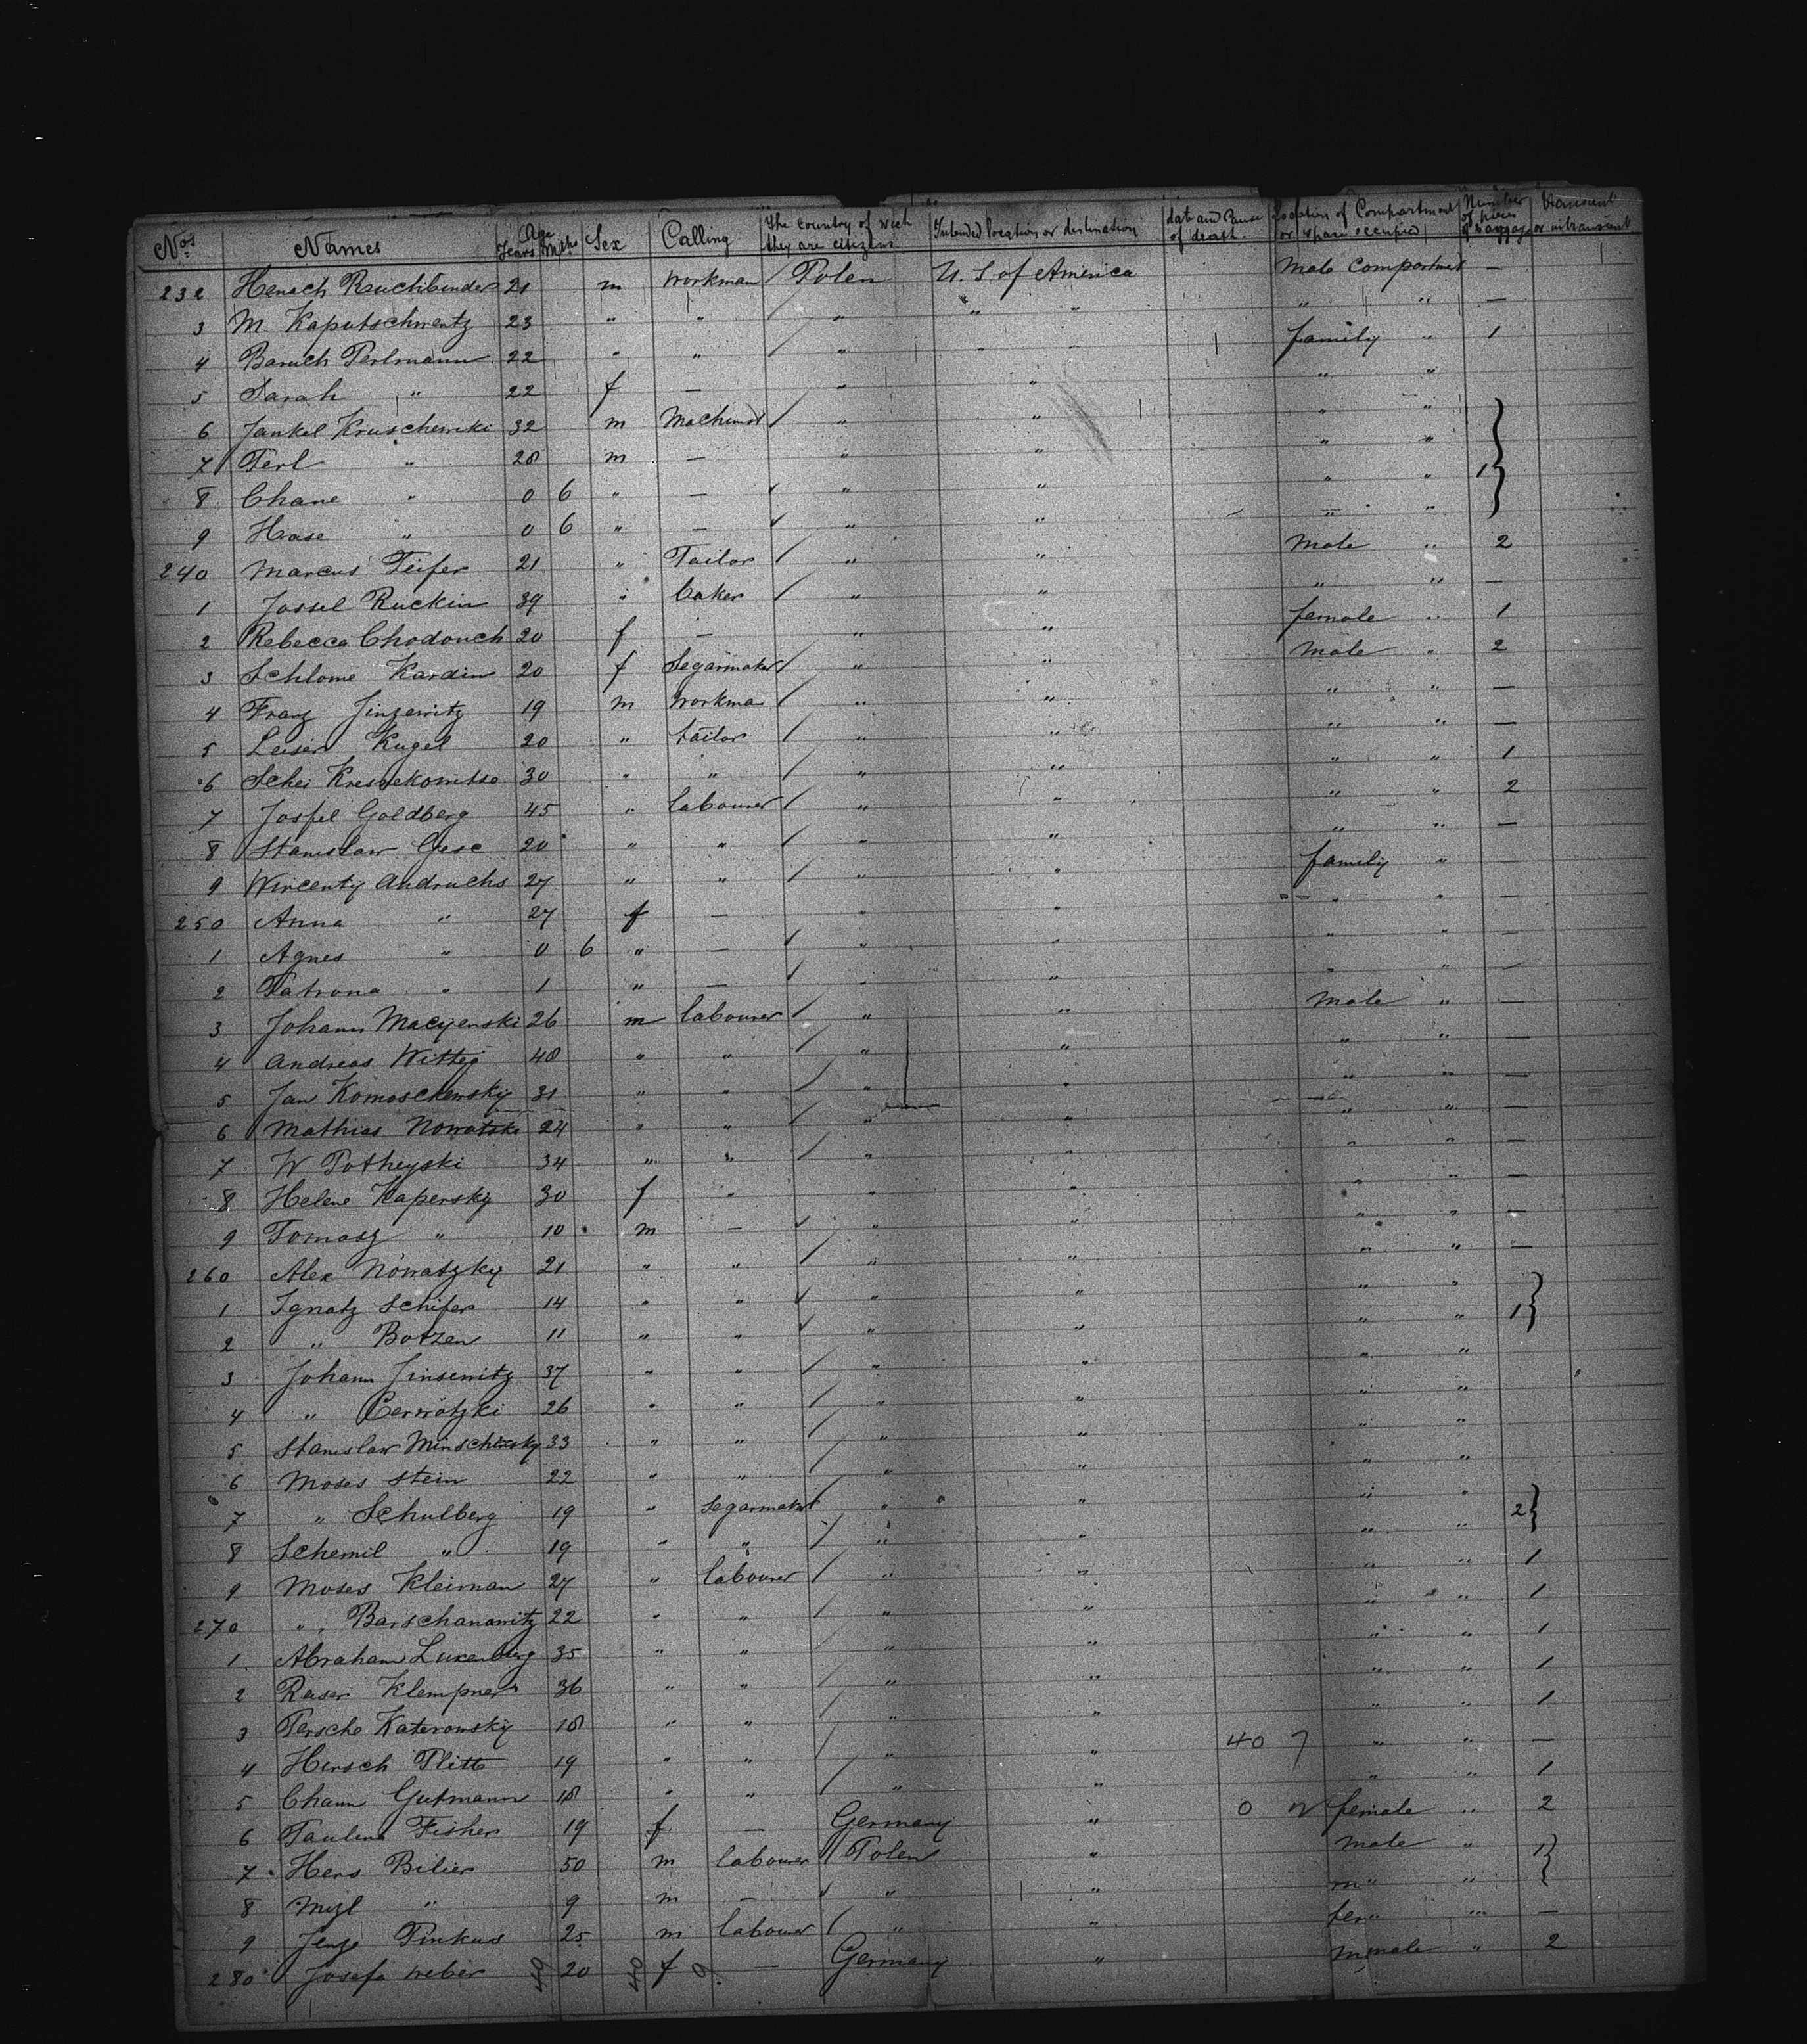 Nos Names Age Years Mths Sex Calling The country of wich they are citizens Intended location or destination date and Cause of death Location of Compartment or space occupied Number of pieces of baggage transient or intransient
232 Henach 21 m Workman Polen U. S. of America Male Compartment —
3 M. Kaputschwentz 23 " " " " " " " —
4 Baruch Perlmann 22 " " " " " family " 1
5 Sarah " 22 f — " " " "
6 Jankel Kruschewiki 32 m Machinist " " " "
7 Perl " 28 m — " " " "
8 Chane " 0 6 " — " " " " 1
9 Hase " 0 6 " — " " " "
240 Marcus Feifer 21 " Tailor " " Male " 2
1 Jossel Ruckin 39 " baker " " " " —
2 Rebecca Chodouch 20 f — " " female " 1
3 Schlome Kardin 20 f Segarmaker " " Male " 2
4 Franz Jinzewitz 19 m Workma " " " " —
5 Leiser Kugel 20 " tailor " " " " —
6 Schei 30 " " " " " " 1
7 Josfel Goldberg 45 " labourer " " " " 2
8 Stanislaw Gesc 20 " " " " " " —
9 Wincenty Andruchs 27 " " " " family "
250 Anna " 27 f — " " " " —
1 Agnes " 0 6 " — " " " " —
2 Patrona " 1 " — " " " " —
3 Johann Macyenski 26 m labourer " " Male " —
4 Andreas Witteg 48 " " " " " " —
5 Jan Komoschewsky 31 " " " " " " —
6 Mathias Nowatski 24 " " " " " " —
7 W Potheyski 34 " " " " " " —
8 Helene Kapersky 30 f " " " " " —
9 Tomasz " 10 m — " " " " —
260 Alex Nowatzky 21 " " " " " " —
1 Ignatz Schifer 14 " " " " " "
2 " Botzen 11 " " " " " " 1
3 Johann Jinsewitz 37 " " " " " "
4 " Cerwatzki 26 " " " " " "
5 Stanislaw Minschewsky 33 " " " " " "
6 Moses Stein 22 " " " " " "
7 " Schulberg 19 " Segarmaker " " " " 2
8 Schemil " 19 " " " " " "
9 Moses Kleiman 27 " labourer " " " " 1
270 " Barschanawitz 22 " " " " " " 1
1 Abraham Luxenberg 35 " " " " " " 1
2 Reiser Klempner 36 " " " " " " 1
3 Persche Katerowsky 18 " " " " " " 1
4 Hersch Plitt 19 " " " " 40 " " —
5 Chann Gutmann 18 " " " " " " 1
6 Pauline Fisher 19 f — Germany " 0 female " 2
7 Hers Bilier 50 m labourer Polen " male " 1
8 " 9 m — " " m" "
9 Pinkus 25 m labourer " " fem " —
280 Josefa Weber 20 f — Germany " male " 2
40 40 0